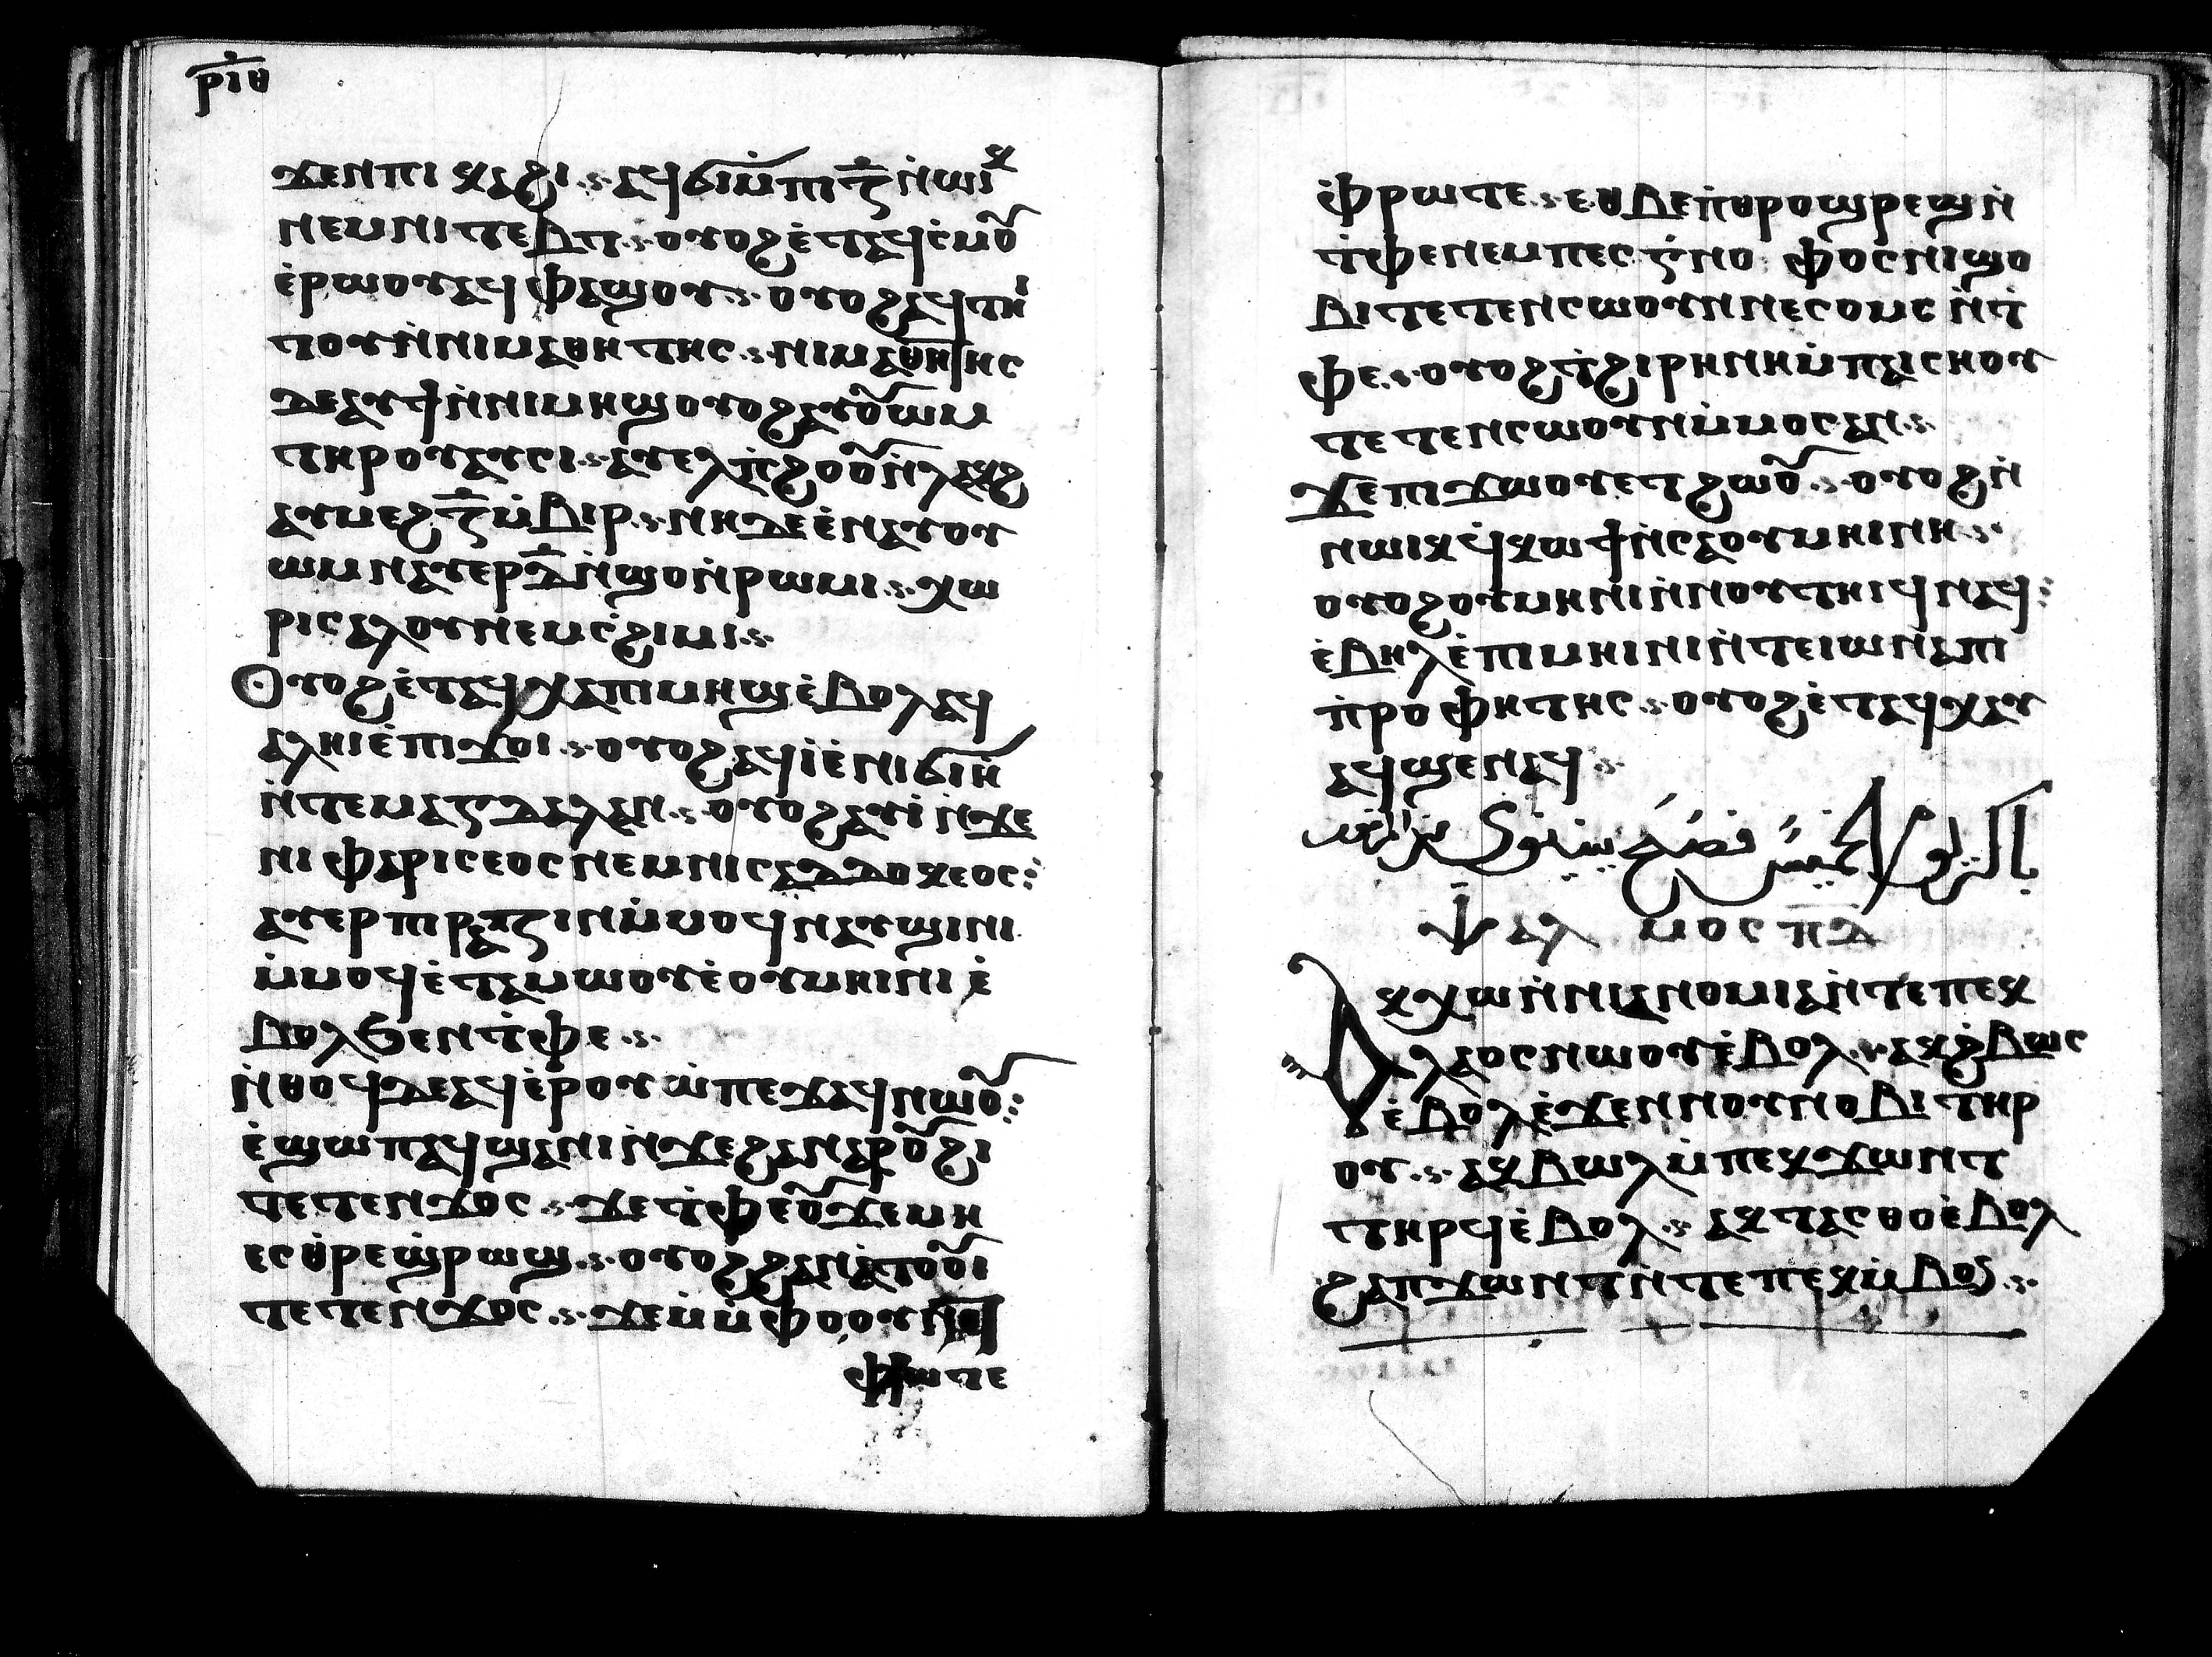 ⲣⲓⲑ
ϫⲉⲛⲡⲓⲕⲁϩⲓ ⲁϥϭⲓⲙ̇ⲡⲓⲍ̅ⲛ̇ⲱⲓⲕ
ⲛⲉⲙⲛⲓⲧⲉⲃⲧ ⲟⲩⲟϩⲉ̇ⲧⲁϥⲥ̇ⲙⲟⲩ
ⲉ̇ⲣⲱⲟⲩⲁϥⲫⲁϣⲟⲩ ⲟⲩⲟϩⲁϥⲧⲏⲓ
ⲧⲟⲩⲛ̇ⲛⲓⲙⲁⲑⲏⲧⲏⲥ ⲛⲓⲙⲁⲑⲏⲧⲏⲥ
ⲇⲉⲁⲩϯⲛ̇ⲛⲓⲙⲏϣⲟⲩⲟϩⲁⲩⲟⲩⲱⲙ
ⲧⲏⲣⲟⲩⲁⲩⲥⲓ ⲁⲩⲉⲗⲡ̇ϩⲟⲩⲟⲛ̇ⲗⲁⲕϩ
ⲁⲩⲙⲉϩⲍ̅ⲙ̇ⲃⲓⲣ ⲛⲏⲇⲉⲉ̇ⲛⲁⲩⲟⲩ
ⲱⲙⲛⲁⲩⲉⲣⲇ̅ⲛ̇ϣⲟⲛ̇ⲣⲱⲙⲓ ⲭⲱ
ⲣⲓⲥⲁⲗⲟⲩⲛⲉⲙⲥ̇ϩⲓⲙⲓ
Ⲟⲩⲟϩⲉ̇ⲧⲁϥⲭⲁⲡⲓⲙⲏϣⲉ̇ⲃⲟⲗⲁϥ
ⲁⲗⲏⲓⲉ̇ⲡⲓϫⲟⲓ ⲟⲩⲟϩⲁϥⲓ̇ⲉ̇ⲛⲓϭⲓⲏ
ⲛ̇ⲧⲉⲙⲁⲅⲇⲁⲗⲁⲛ ⲟⲩⲟϩⲁⲩⲓ̇ⲛ̇ϫⲉ
ⲛⲓⲫⲁⲣⲓⲥⲉⲟⲥⲛⲉⲙⲛⲓⲥⲁⲇⲇⲟⲕⲉⲟⲥ
ⲁⲩⲉⲣⲡⲓⲣⲁⲍⲓⲛⲙ̇ⲙⲟϥⲛⲁⲩϣⲓⲛⲓ
ⲙ̇ⲙⲟϥⲉ̇ⲧⲁⲙⲱⲟⲩⲉ̇ⲟⲩⲙⲏⲓⲛⲓ ⲉ̇
ⲃⲟⲗϧⲉⲛⲧ̇ⲫⲉ
ⲛ̇ⲑⲟϥⲇⲉⲁϥⲉ̇ⲣⲟⲩⲱ̇ⲡⲉϫⲁϥⲛⲱⲟⲩ
ⲉ̇ϣⲱⲡⲁϥϣⲁⲛⲓ̇ⲛ̇ϫⲉϩⲁⲛⲁⲣⲟⲩϩⲓ
ⲧⲉⲧⲉⲛϫⲟⲥ ϫⲉⲧ̇ⲫⲉⲟⲩϫⲉⲙⲏ
ⲉⲥⲑ̇ⲣⲉϣⲣⲱϣ ⲟⲩⲟϩϩⲁⲛⲁ̇ⲧⲟⲟⲩⲓ
ⲧⲉⲧⲉⲛϫⲟⲥ ϫⲉⲙ̇ⲙ̇ⲫⲟⲟⲩ
ⲫⲣⲱⲧⲉ
ⲉ̇ⲫⲣⲱⲧⲉ ⲉⲑⲃⲉⲡ̇ⲑⲣⲟϣⲣⲉϣⲛ̇
ⲧ̇ⲫⲉⲛⲉⲙⲡⲉⲥⲅ̇ⲛⲟ ⲫⲟⲥⲛⲓϣⲟ
ⲃⲓⲧⲉⲧⲉⲛⲥⲱⲟⲩⲛⲛⲉⲥⲟⲙⲥ ⲛ̇ⲧ̇
ⲫⲉ ⲟⲩⲟϩⲧ̇ϩⲓⲣⲏⲛⲏⲙ̇ⲡⲁⲓⲥⲏⲟⲩ
ⲧⲉⲧⲉⲛⲥⲱⲟⲩⲛⲙ̇ⲙⲟⲥⲁⲛ
ϫⲉⲡⲓϫⲱⲟⲩⲉⲧϩⲱⲟⲩ ⲟⲩⲟϩⲛ̇
ⲛⲱⲓⲕϥ̇ⲕⲱϯⲛ̇ⲥⲁⲟⲩⲙⲏⲓⲛⲏ
ⲟⲩⲟϩⲟⲩⲙⲏⲛⲓⲛ̇ⲛⲟⲩⲧⲏⲓϥⲛⲁϥ
ⲉ̇ⲃⲏⲗⲉ̇ⲡⲓⲙⲏⲓⲛⲓⲛ̇ⲧⲉⲓⲱⲛⲁⲡⲓ
ⲡ̇ⲣⲟⲫⲏⲧⲏⲥ ⲟⲩⲟϩⲉ̇ⲧⲁϥⲭⲁⲩ
ⲁϥϣⲉⲛⲁϥ
ⲯⲁⲗⲙⲟⲥⲡⲇ
Ⲁⲕⲭⲱⲛ̇ⲛⲓⲁⲛⲟⲙⲓⲁⲛ̇ⲧⲉⲡⲉⲕ
ⲗⲁⲟⲥⲛⲱⲟⲩⲉ̇ⲃⲟⲗ ⲁⲕϩ̇ⲃⲱⲥ
ⲉ̇ⲃⲟⲗⲉ̇ϫⲉⲛⲛⲟⲩⲛⲟⲃⲓⲧⲏⲣ
ⲟⲩ ⲁⲕⲃⲱⲗⲙ̇ⲡⲉⲕϫⲱⲛⲧ
ⲧⲏⲣϥⲉ̇ⲃⲟⲗ ⲁⲕⲧⲁⲥⲑⲟⲉ̇ⲃⲟⲗ
ϩⲁⲡϫⲱⲛⲧⲛ̇ⲧⲉⲡⲉⲕⲙ̇ⲃⲟⲛ